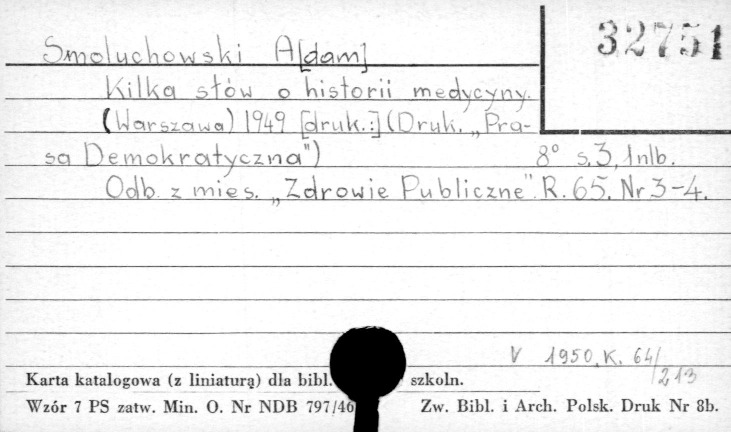 32751
Smoluchowski A[dam]
Kilka słów o historii medycyny.
(Warszawa) 1949 [druk.:] (Druk. „Pra-
sa Demokratyczna") 8° s. 3, 1nlb.
Odb. z mies. „Zdrowie Publiczne". R. 65. Nr 3-4.
V 1950. K. 64/213
Karta katalogowa (z liniaturą) dla bibl. szkoln.
Wzór 7 PS zatw. Min. O. Nr NDB 797/46 Zw. Bibl. i Arch. Polsk. Druk Nr 8b.